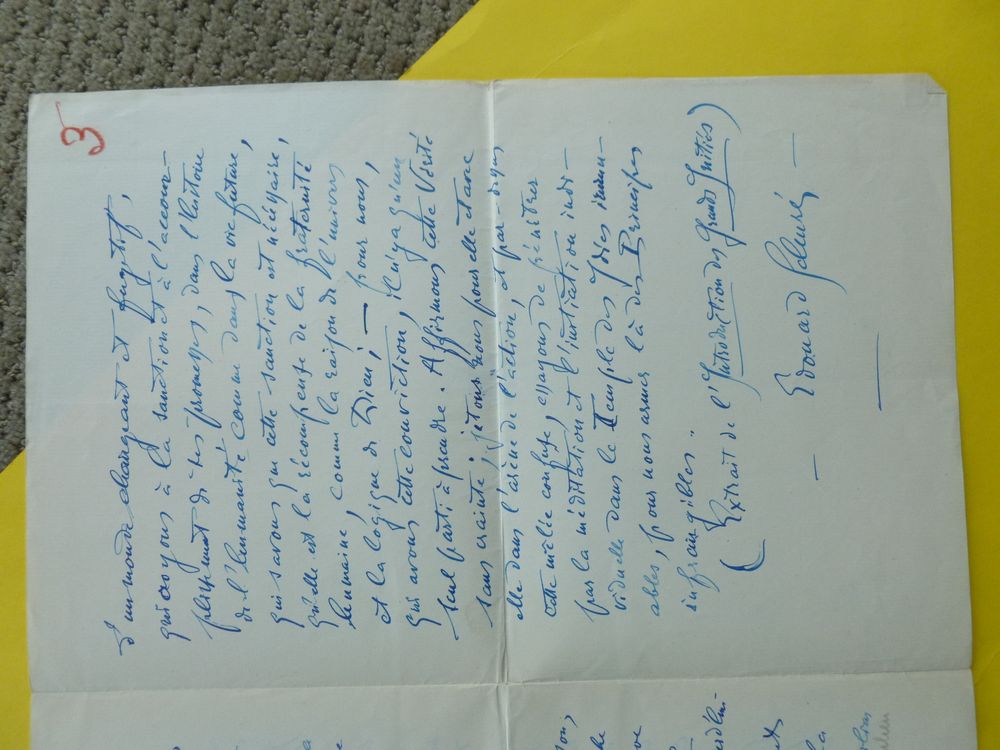 3
d'un monde changeant et fugitif,
qui croyons à la sanction et à l'accom-
plissement de ses promesses, dans l'histoire
de l'humanité comme dans la vie future,
qui savons que cette sanction est nécessaire,
qu'elle est la récompense de la fraternité
humaine, comme la raison de l'univers
et la logique de Dieu ; — pour nous,
qui avons cette conviction, il n'y a qu'un
seul parti à prendre. Affirmons cette Vérité
sans crainte ; jetons nous pour elle et avec
elle dans l'arène de l'action, et par-dessus
cette mêlée confuse, essayons de pénétrer
par la méditation et l'initiation indi-
viduelle dans le Temple des Idées immu-
ables, pour nous armer là des Principes
infrangibles."
(Extrait de l'Introduction des Grands Initiés)
— Edouard Schuré —